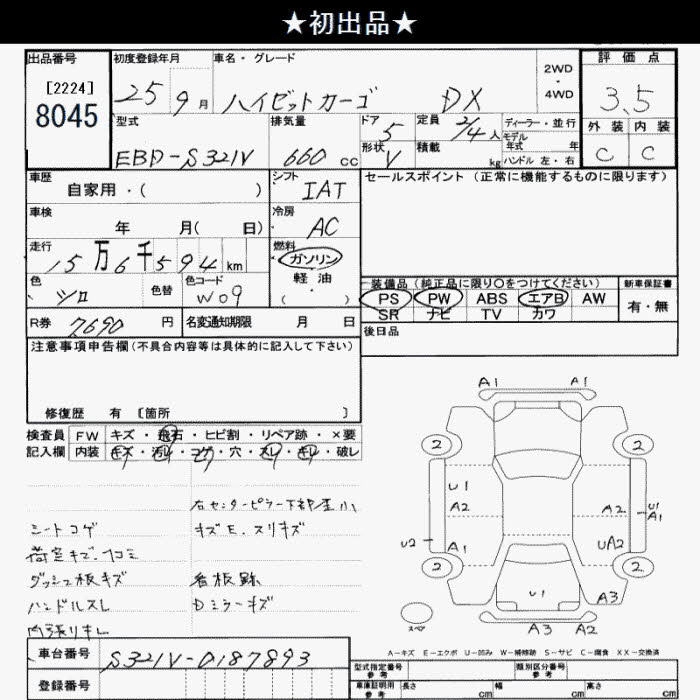 ★初出品★
出品番号 初度登録年月 車名・グレード 2WD・4WD 評価点
[2224]
8045
25 9月 ハイゼットカーゴ DX 3.5
型式 排気量 ドア 5 定員 2/4人 ディーラー・並行 外装 内装
EBD-S321V 660cc 形状 V 積載 kg モデル年式 年 C C
ハンドル 左・右
車歴 シフト セールスポイント (正常に機能するものに限ります)
自家用・( ) IAT
車検 冷房
年 月( 日) AC
走行 燃料
15万6千594km ガソリン
色 色替 色コード 軽油 装備品 (純正品に限り○をつけてください) 新車保証書
シロ W09 ( ) PS PW ABS エアB AW 有・無
SR ナビ TV カワ
R券 7690円 名変通知期限 月 日 後日品
注意事項申告欄 (不具合内容等は具体的に記入して下さい)
修復歴 有 〔箇所 〕
検査員 FW キズ・飛石・ヒビ割・リペア跡・×要
記入欄 内装 キズ・汚れ・コゲ・穴・スレ・キレ・破レ
右センターピラー下部 小
シートコゲ キズE、スリキズ
荷室キズ、
ダッシュ板キズ 看板跡
ハンドルスレ Dミラーキズ
内張りキレ
A1 A1
2 2
U1 U1
A2 A2 A1
U2 A1 UA2
2 2
U1 A3
スペア A3 A2
A-キズ E-エクボ U-凹み W-補修跡 S-サビ C-腐食 XX-交換済
車台番号 S321V-0187893 型式指定番号 参考 類別区分番号 参考
登録番号 車庫証明用 参考 長さ cm 幅 cm 高さ cm